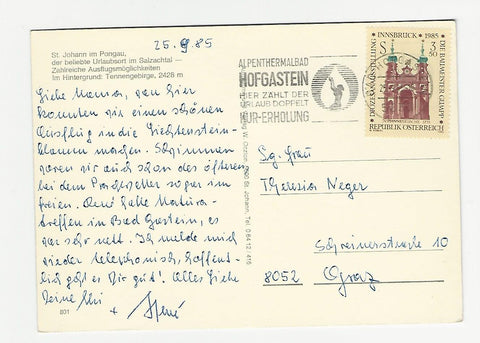 25.9.85
St. Johann im Pongau,
der beliebte Urlaubsort im Salzachtal –
Zahlreiche Ausflugsmöglichkeiten
Im Hintergrund: Tennengebirge, 2428 m
Liebe Mama, von hier
konnten wir einen schönen
Ausflug in die Liechtenstein-
klamm machen. Schwimmen
waren wir auch schon des öfteren
bei dem Prachtwetter sogar im
freien. René hatte Matura-
treffen in Bad Gastein, es
war sehr nett. Ich melde mich
wieder telephonisch, hoffent-
lich geht es Dir gut! Alles Liebe
Deine
+ René
801
ALPENTHERMALBAD
HOFGASTEIN
HIER ZÄHLT DER
URLAUB DOPPELT
KUR-ERHOLUNG
INNSBRUCK 1985
DIE BAUMEISTER GUMPP
S 3 50
REPUBLIK ÖSTERREICH
St. Johann, Tel. 0 64 12 / 476
Sg. Frau
Theresia Neger
Schreinerstraße 10
8052 Graz